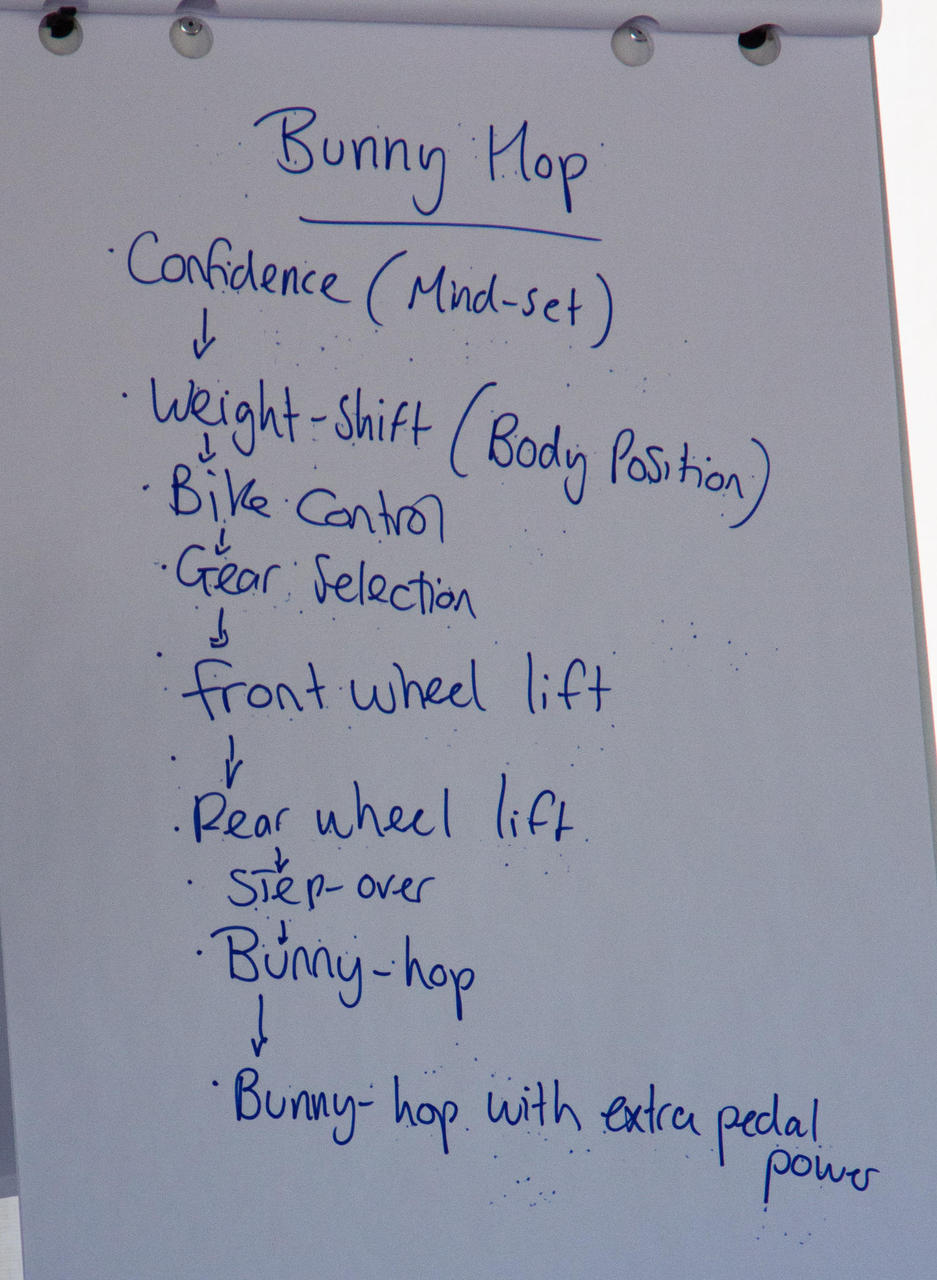 Bunny Hop
· Confidence (Mind-set)
↓
· Weight-shift (Body Position)
↓
· Bike Control
↓
· Gear Selection
↓
· front wheel lift
↓
· Rear wheel lift
↓
· Step-over
↓
· Bunny-hop
↓
· Bunny-hop with extra pedal
power